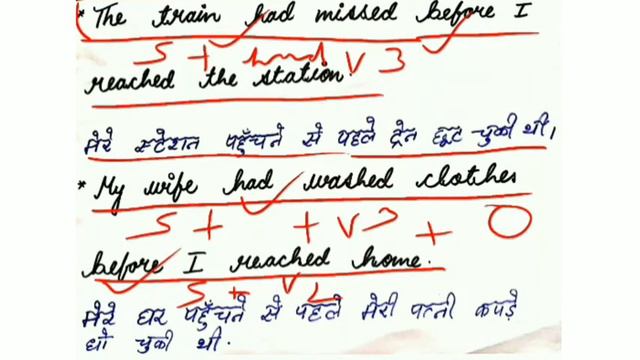 * The train had missed before I
S + had V 3
reached the station.
मेरे स्टेशन पहुँचने से पहले ट्रेन छूट चुकी थी।
* My wife had washed clothes
S + + V3 + O
before I reached home.
S + V2
मेरे घर पहुँचने से पहले मेरी पत्नी कपड़े
धो चुकी थी.